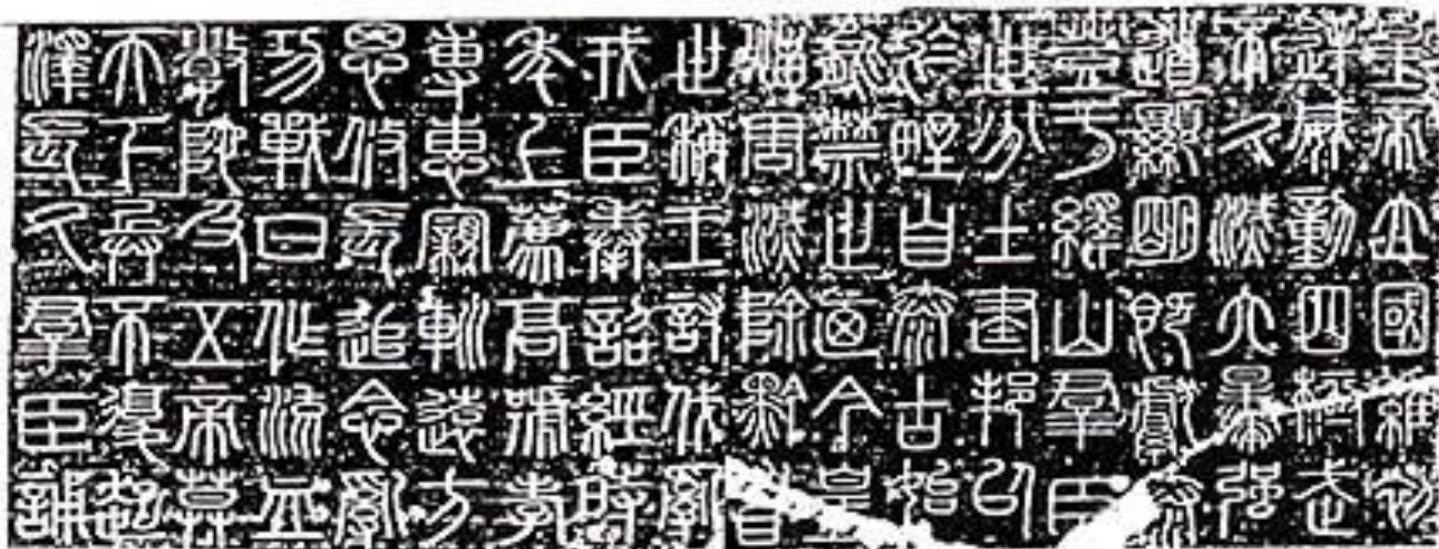 皇帝立國維初
逆威動四極武
不久滅六暴強
道顯明既獻泰
登于繹山群臣
世分土建邦以
於野自泰古始
能禁止乃今皇
災害滅除黔首
世稱王討伐亂
戎臣奉詔經時
年上薦高號孝
專惠親巡遠方
思攸長追念亂
功戰日作流血
數阤及五帝莫
天下兵不復起
澤長久群臣誦